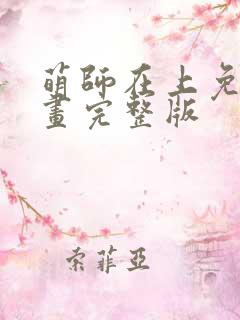 萌師在上免
畫完整版
索菲亞